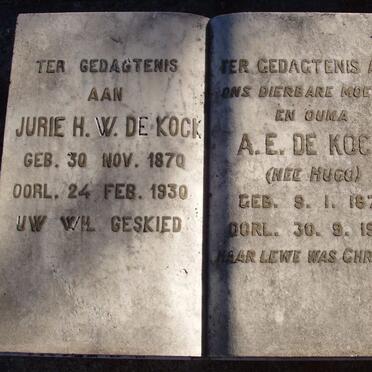 TER GEDAGTENIS
AAN
JURIE H. W. DE KOCK
GEB. 30 NOV. 1870
OORL. 24 FEB. 1930
UW WIL GESKIED
TER GEDAGTENIS
ONS DIERBARE
EN OUMA
A. E. DE KOC
(NEE HUGO)
GEB. 9. 1. 187
OORL. 30. 9. 19
HAAR LEWE WAS CHR